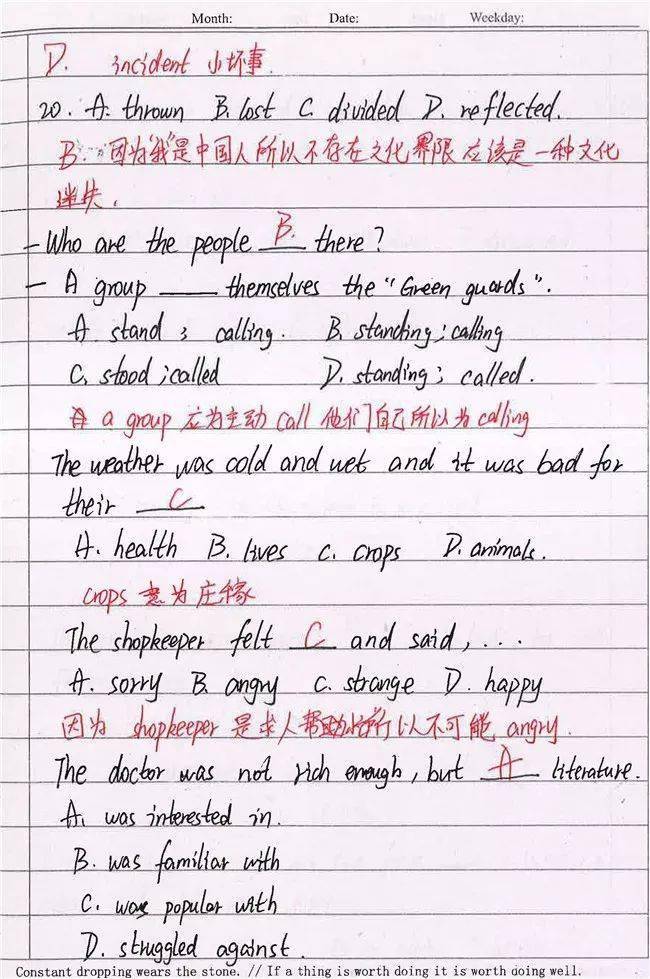 Month: Date: Weekday:
D. incident 小坏事.
20. A. thrown B. lost C. divided D. reflected.
B. 因为"我"是中国人所以不存在文化界限应该是一种文化
迷失.
- Who are the people B. there?
- A group ____ themselves the "Green guards".
A. stand ; calling. B. standing ; calling
C. stood ; called D. standing ; called.
a group 应为主动 call 他们自己所以为 calling
The weather was cold and wet and it was bad for
their C
A. health B. lives C. crops D. animals.
crops 意为庄稼
The shopkeeper felt C and said, ...
A. sorry B. angry C. strange D. happy
因为 shopkeeper 是求人帮助 所以不可能 angry.
The doctor was not rich enough, but A literature.
A. was interested in.
B. was familiar with
C. was popular with
D. struggled against.
Constant dropping wears the stone. // If a thing is worth doing it is worth doing well.